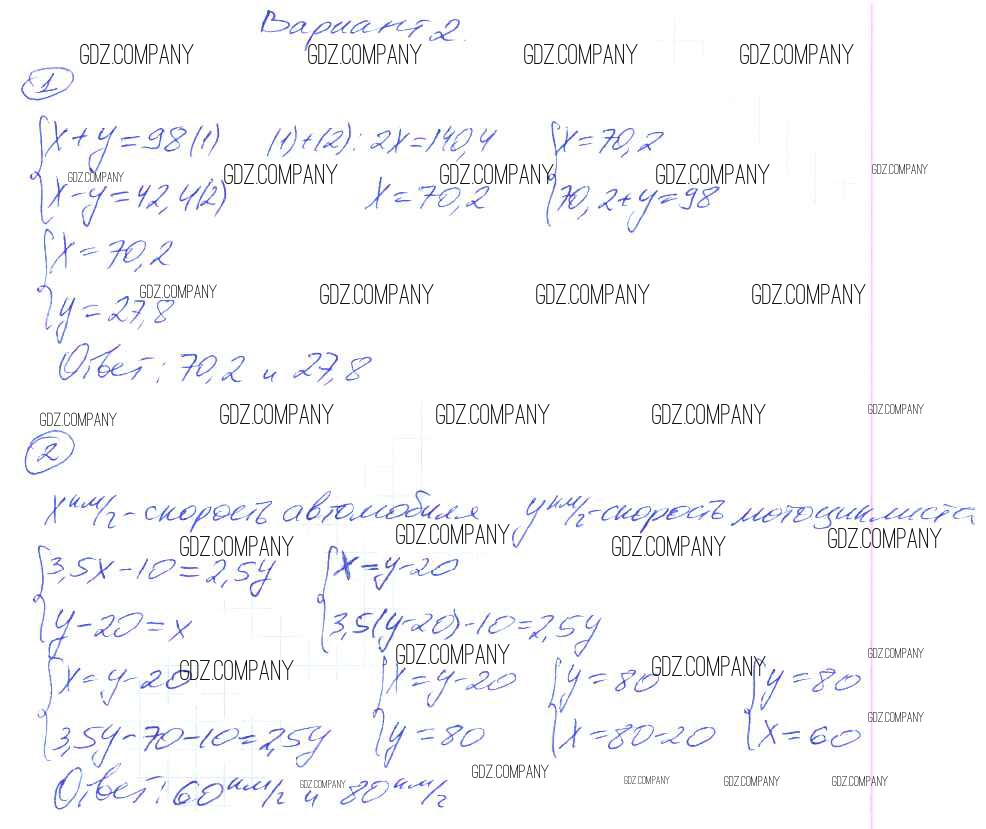 Вариант 2.
GDZ.COMPANY GDZ.COMPANY GDZ.COMPANY GDZ.COMPANY
1
x+y=98(1) (1)+(2): 2x=140,4 x=70,2
GDZ.COMPANY GDZ.COMPANY GDZ.COMPANY GDZ.COMPANY GDZ.COMPANY
x-y=42,4(2) x=70,2 70,2+y=98
x=70,2
GDZ.COMPANY GDZ.COMPANY GDZ.COMPANY GDZ.COMPANY
y=27,8
Ответ: 70,2 и 27,8
GDZ.COMPANY GDZ.COMPANY GDZ.COMPANY GDZ.COMPANY GDZ.COMPANY
2
x км/г - скорость автомобиля y км/г - скорость мотоциклиста
GDZ.COMPANY GDZ.COMPANY GDZ.COMPANY GDZ.COMPANY
3,5x-10=2,5y x=y-20
y-20=x 3,5(y-20)-10=2,5y
GDZ.COMPANY GDZ.COMPANY GDZ.COMPANY GDZ.COMPANY
x=y-20 x=y-20 y=80 y=80
GDZ.COMPANY
3,5y-70-10=2,5y y=80 x=80-20 x=60
GDZ.COMPANY GDZ.COMPANY GDZ.COMPANY GDZ.COMPANY GDZ.COMPANY
Ответ: 60 км/г и 80 км/г